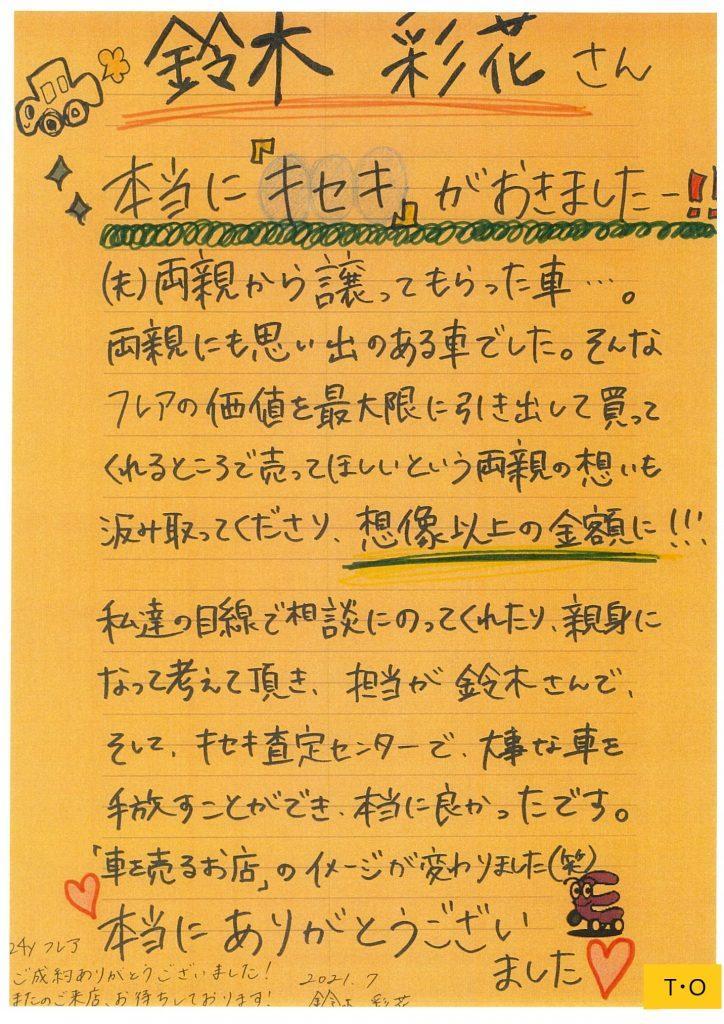 鈴木 彩花 さん
本当に『キセキ』がおきましたー!!
(夫)両親から譲ってもらった車…。
両親にも思い出のある車でした。そんな
フレアの価値を最大限に引き出して買って
くれるところで売ってほしいという両親の想いも
汲み取ってくださり、想像以上の金額に!!!
私達の目線で相談にのってくれたり、親身に
なって考えて頂き、担当が鈴木さんで、
そして、キセキ査定センターで、大事な車を
手放すことができ、本当に良かったです。
「車を売るお店」のイメージが変わりました(笑)
本当にありがとうござい
ました
24y フレア
ご成約ありがとうございました!
またのご来店、お待ちしております!
2021.7
鈴木 彩花
T・O